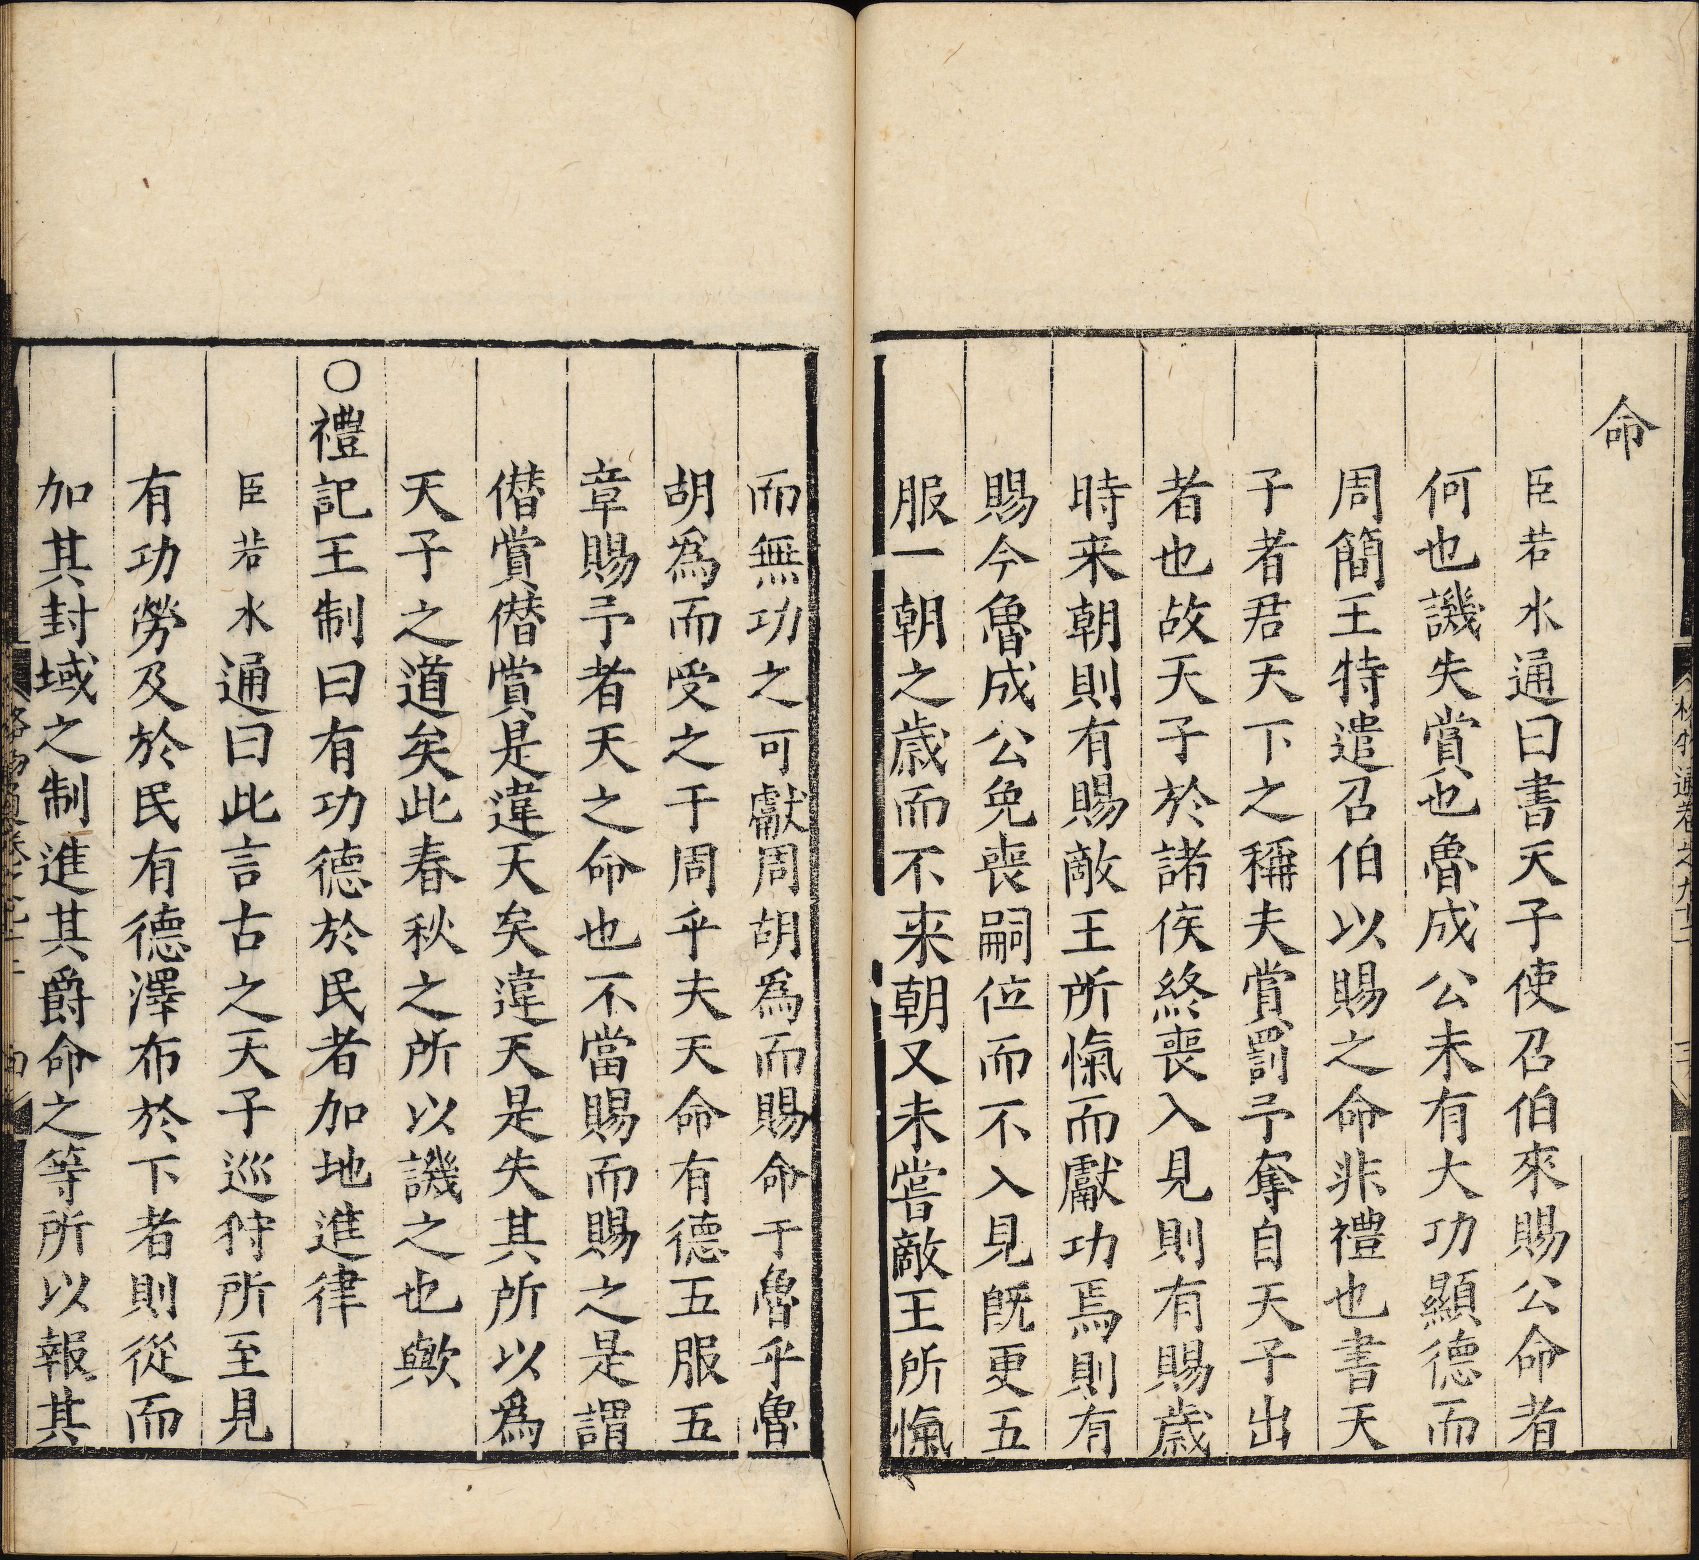 命
臣若水通曰書天子使召伯來賜公命者
何也譏失賞也魯成公未有大功顯德而
周簡王特遣召伯以賜之命非禮也書天
子者君天下之稱夫賞罰予奪自天子出
者也故天子於諸侯終喪入見則有賜歲
時来朝則有賜敵王所愾而獻功焉則有
賜今魯成公免喪嗣位而不入見旣更五
服一朝之歲而不来朝又未嘗敵王所愾
而無功之可獻周胡爲而賜命于魯乎魯
胡爲而受之于周乎夫天命有德五服五
章賜予者天之命也不當賜而賜之是謂
僭賞僭賞是違天矣違天是失其所以爲
天子之道矣此春秋之所以譏之也歟
○禮記王制曰有功德於民者加地進律
臣若水通曰此言古之天子巡狩所至見
有功勞及於民有德澤布於下者則從而
加其封域之制進其爵命之等所以報其